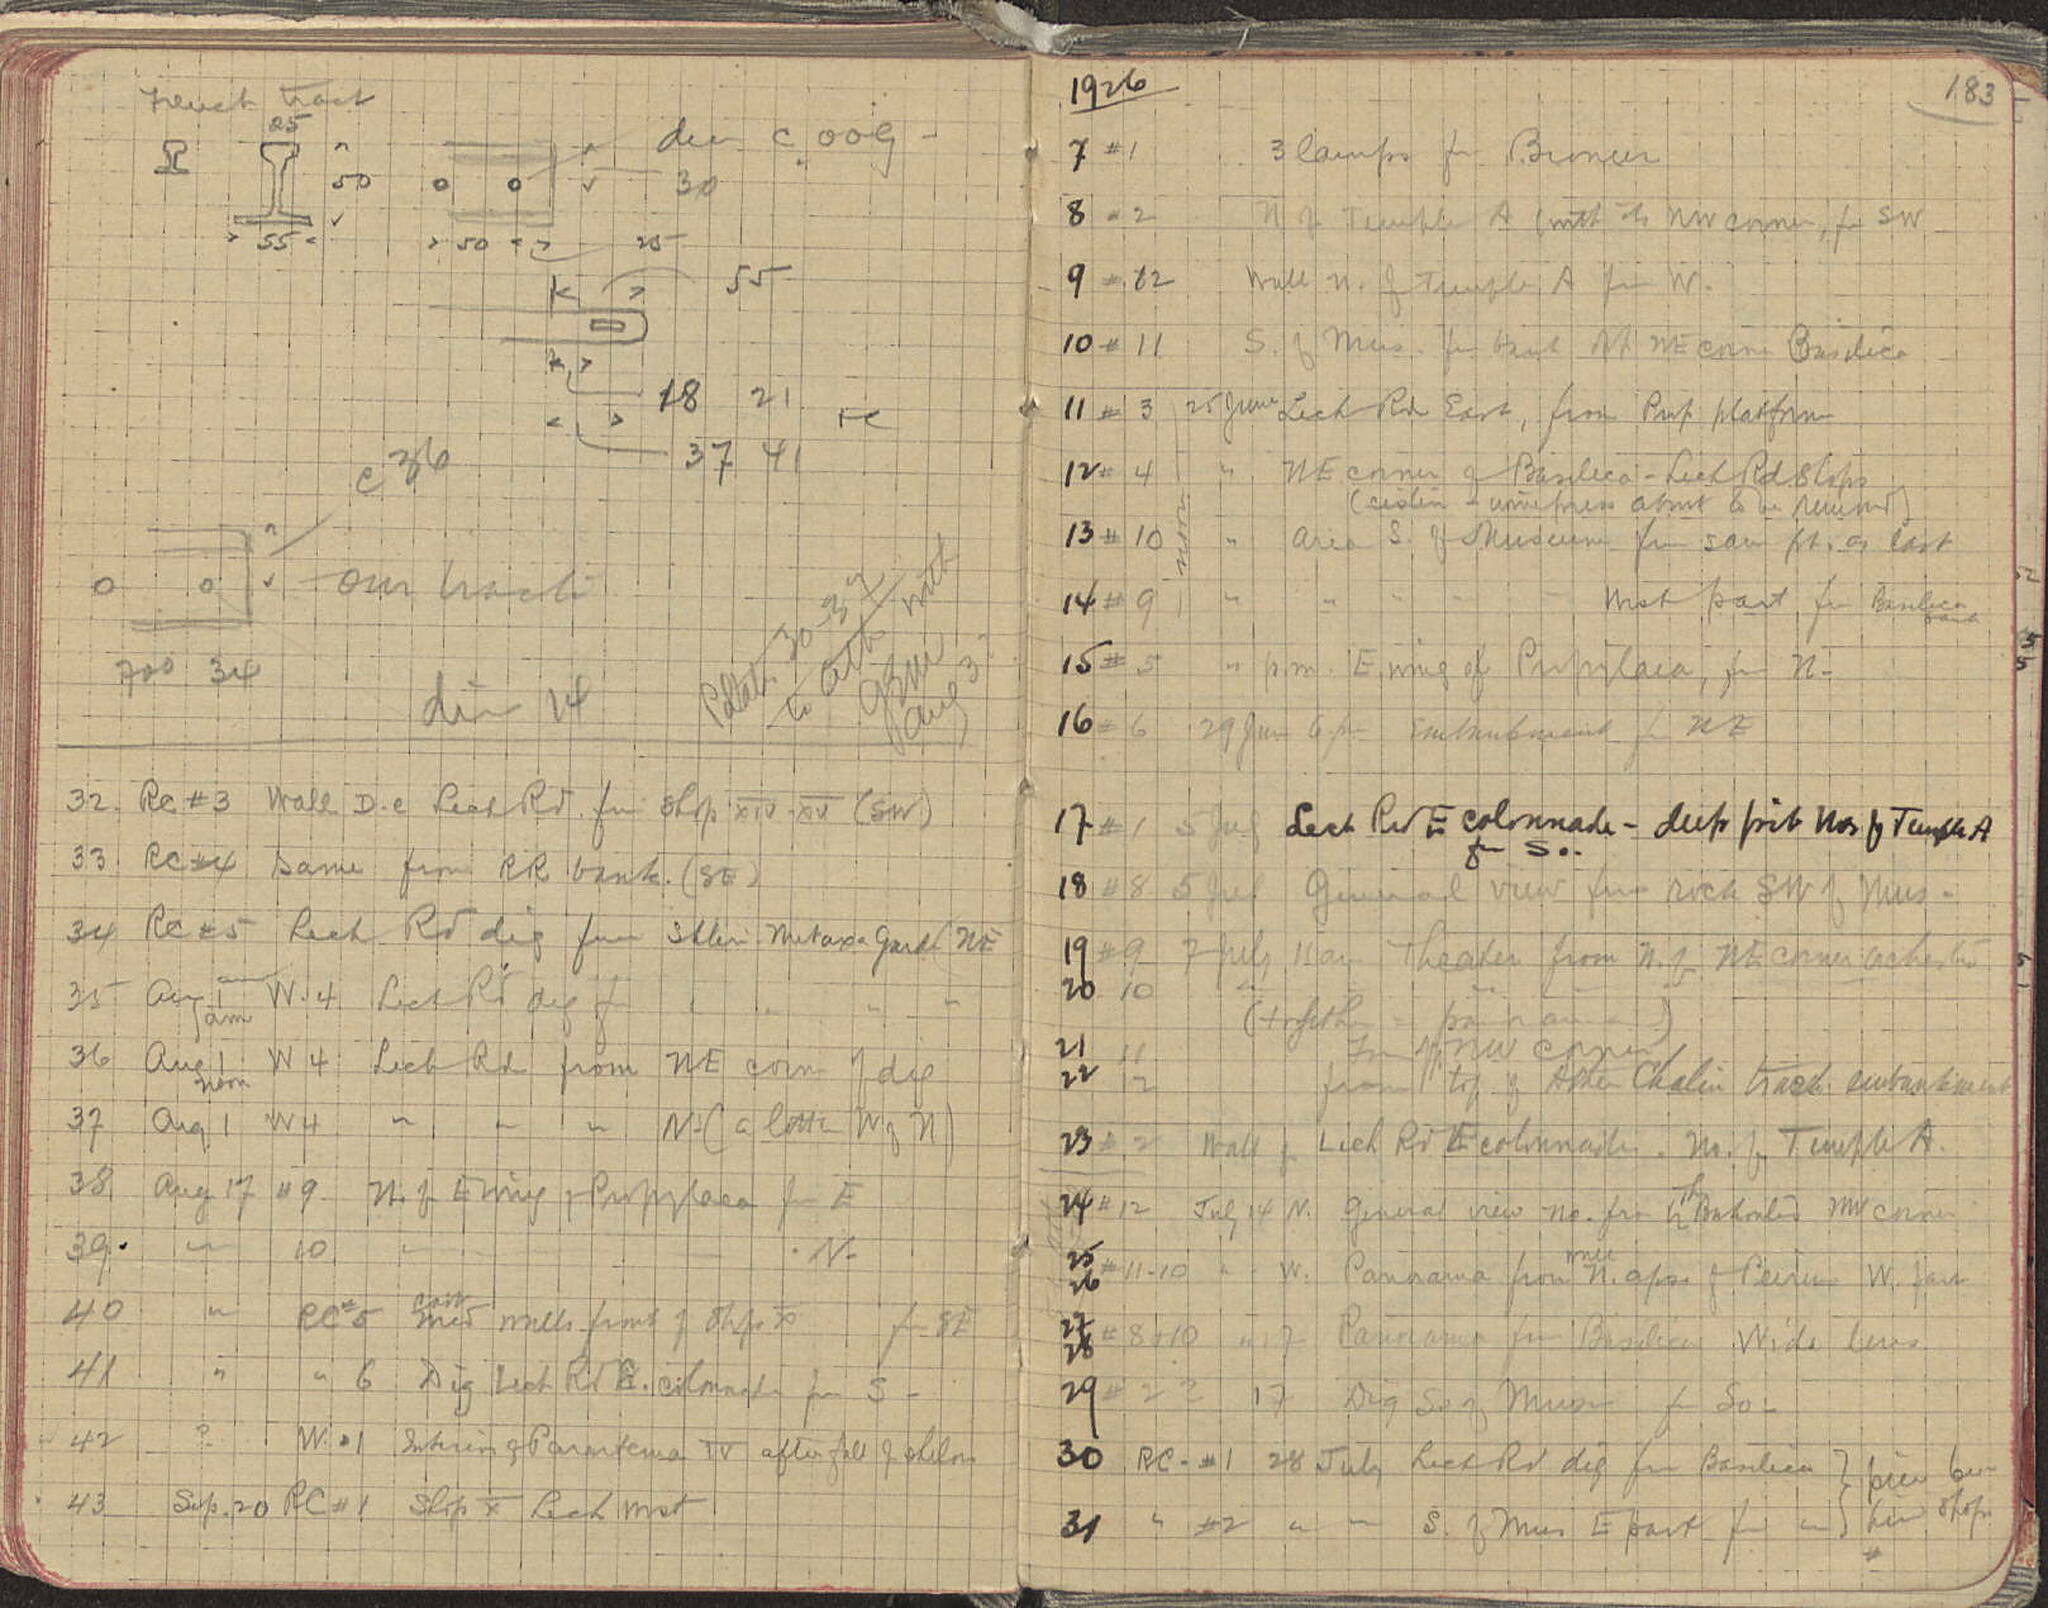 French tract
25
50
55
dia c. 009 -
30
50
25
55
18 21
37 41
c 36
our tracti
700 34
dia 14
30-32
to with
GBW
Aug 3
32. RC #3 Wall D-c Lech Rd. fm Shop XIV-XV (SW)
33 RC #4 same from RR bank. (SE)
34 RC #5 Lech Rd dig fm Metaxa Gard (NE
35 Aug 1 am W. 4 Lech Rd dig f " " "
36 Aug 1 noon W 4 Lech Rd from NE corn of dig
37 Aug 1 W 4 " " " N (a little W of N)
38 Aug 17 #9 N. of E wing of Propylaea fm E
39. " 10 " N-
40 " RC #5 walls front of shops X fm SE
41 " " 6 Dig Lech Rd E. colonnade fm S -
42 ? W. #1 Interior of IV after fall of
43 Sep. 20 RC #1 Shop X Lech West
1926
183
7 #1 3 lamps fm Broneer
8 #2 N of Temple A (with its NW corner, fm SW
9 #12 Wall N. of Temple A fm W.
10 #11 S. of Mus. fm NE corn Basilica
11 #3 25 June Lech Rd East, from Prop platform
noon
12 #4 " NE corner of Basilica - Lech Rd Shops
(cistern - winepress about to be removed)
13 #10 " Area S. of Museum fm same pt. as last
14 #9 " " " West part fm Basilica
15 #5 " p.m. E. wing of Propylaea, fm N-
16 #6 29 June 6 p- embankment fm NE
17 #1 5 July Lech Rd E colonnade - deep pit Nor of Temple A
fm So.
18 #8 5 Jul General view from rock SW of Mus -
19 #9 7 July 11 am Theater from N. of NE corner orchestra
20 10 " "
(together = panorama)
21 11 fm NW corner
22 12 from top of track embankment
23 #2 Wall of Lech Rd E colonnade. No. of Temple A.
24 #12 July 14 N. General view no. from NW corner
25
26 #11-10 " W. Panorama from N. apse of Peirene W. part
27
28 #8+10 " 17 Panorama fm Basilica Wide lens
29 #2 2 17 Dig So of Museum fm So -
30 RC - #1 28 July Lech Rd dig fm Basilica
31 " #2 " " S. of Mus E part fm "
shops